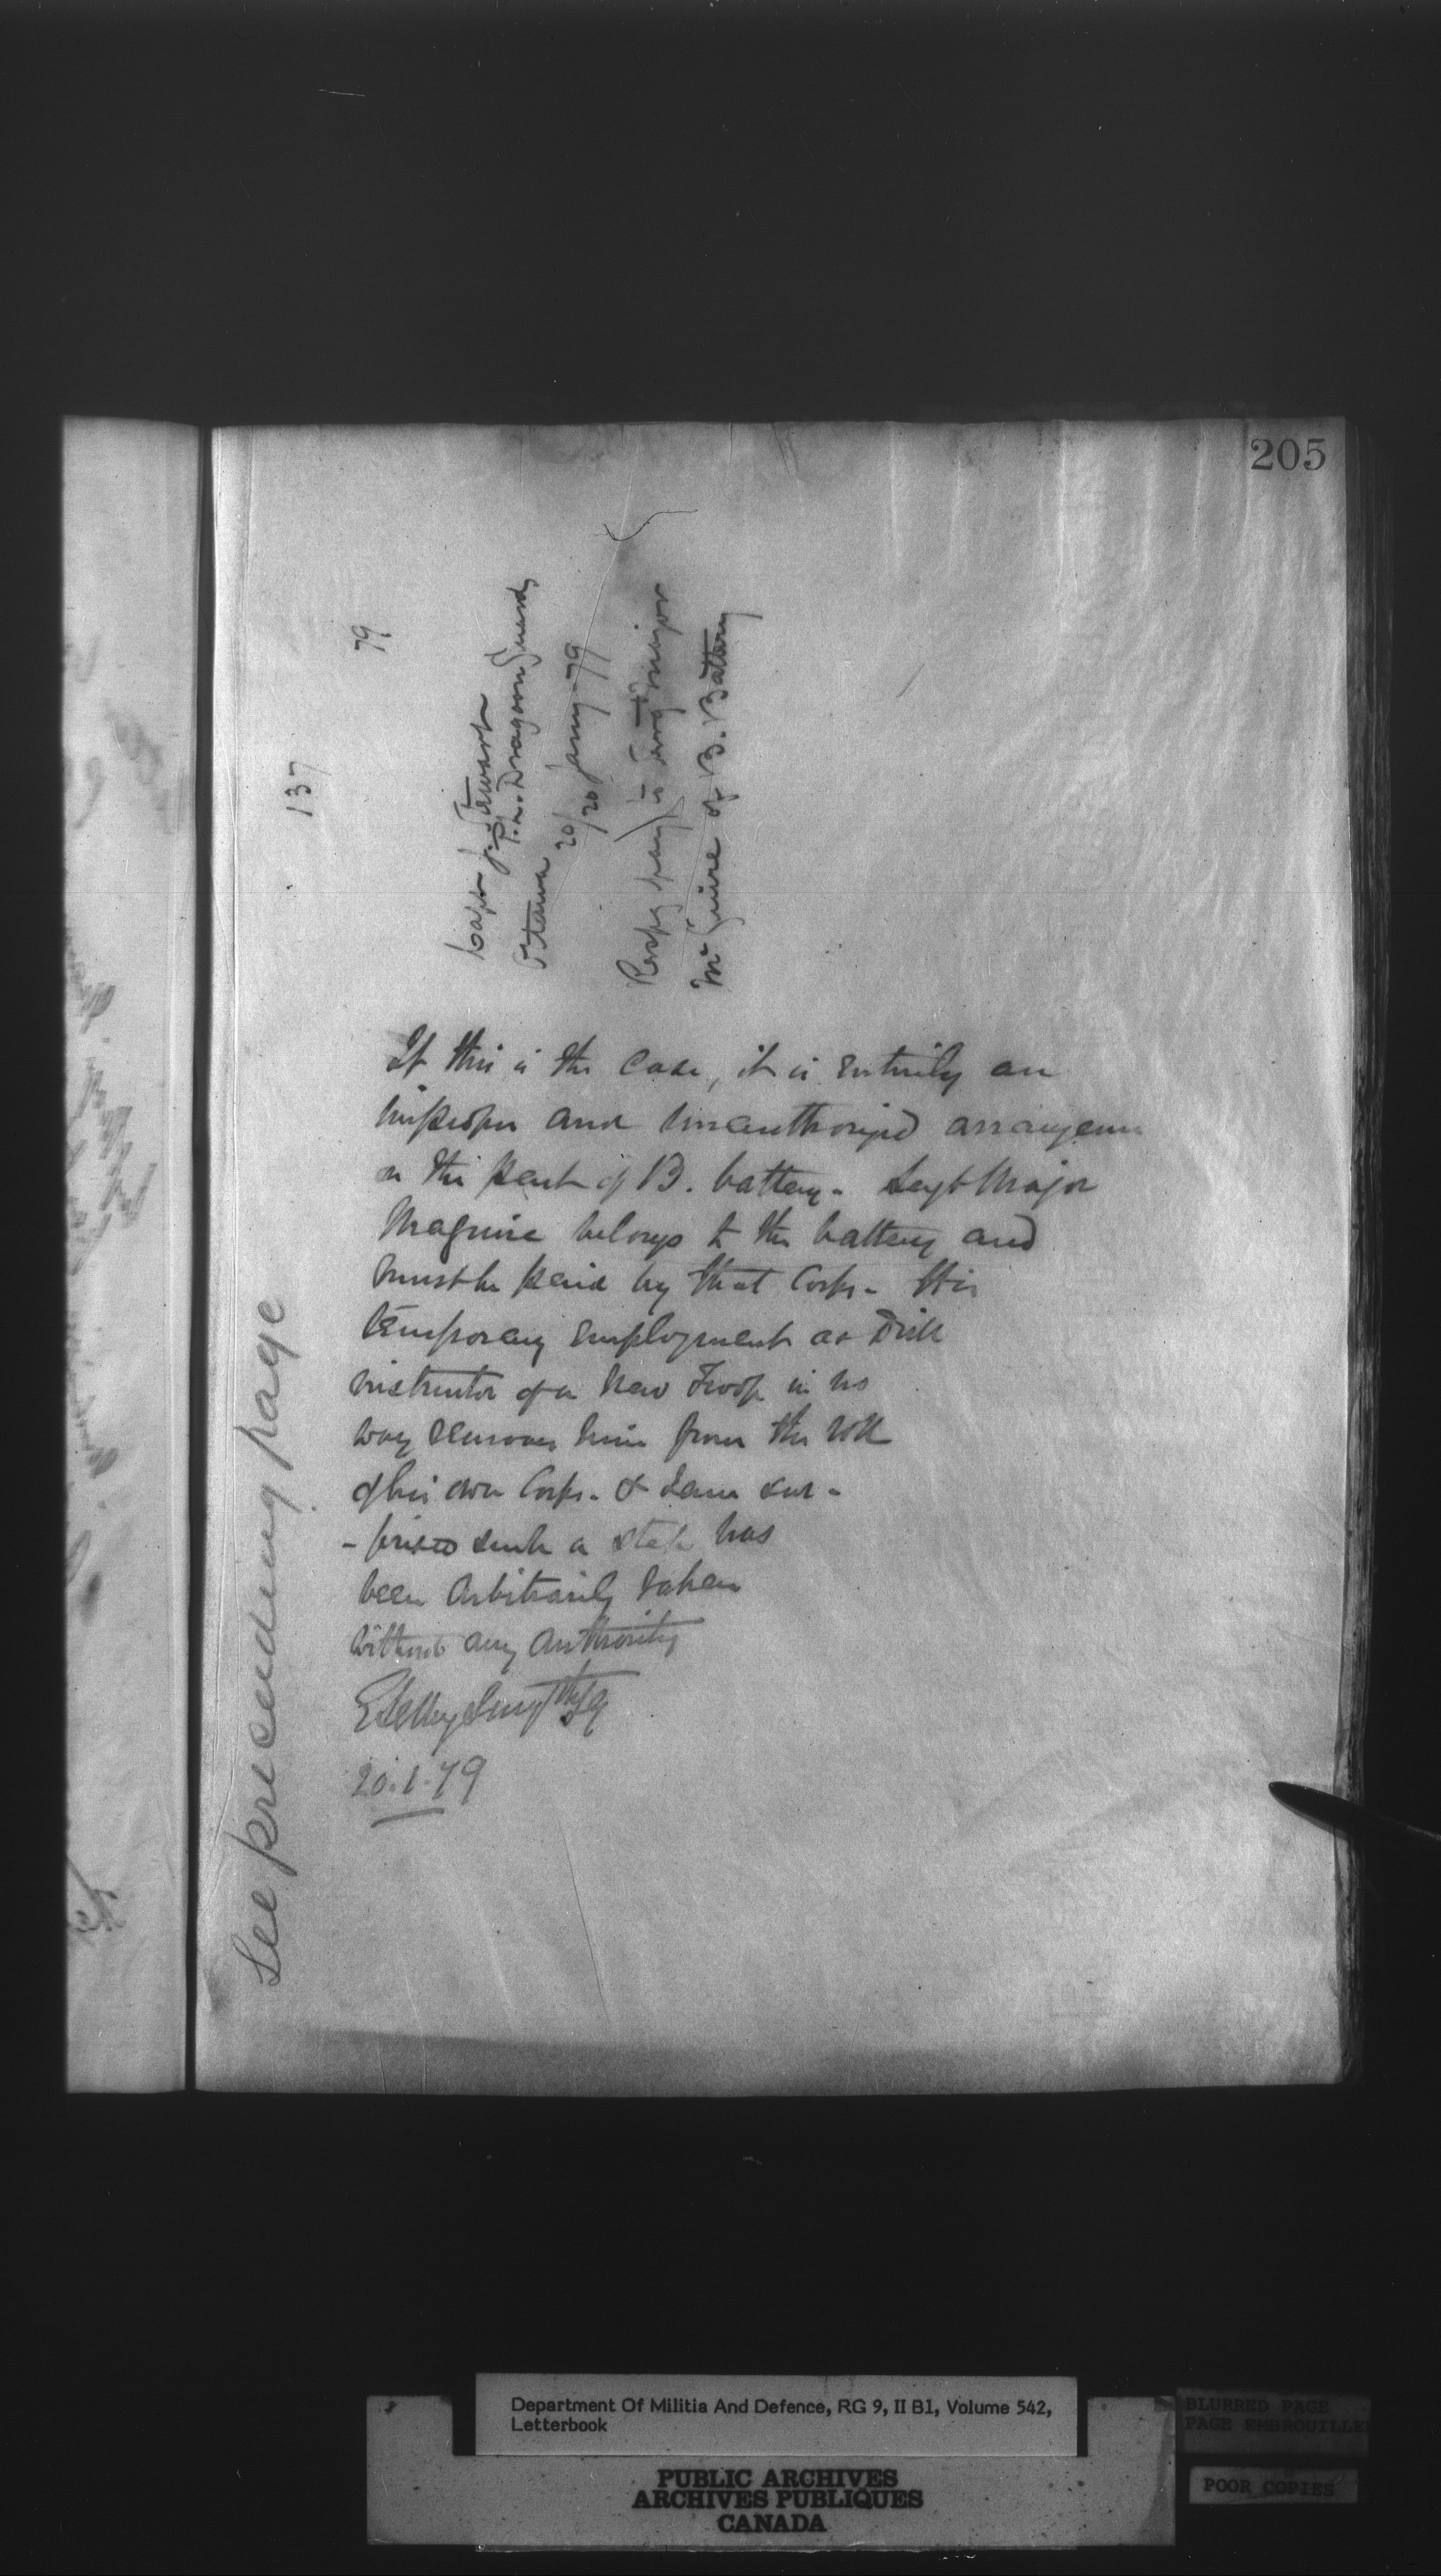 205
137
79
Capt J. Stewart
P. L. Dragoon Guards
Ottawa
20/20 Jany 79
Respg pay to Sergt Major
McGuire of B. Battery
If this is the case, it is entirely an
improper and unauthorized arrangemen
on the part of B. battery - Sergt Major
Maguire belongs to the battery and
must be paid by that Corps - His
temporary employment as Drill
instructor of a new Troop in no
way removes him from the roll
of his own Corps - & I am sur -
- prised such a step has
been arbitrarily taken
without any authority
E Selby Smyth
20.1.79
See preceeding page
Department Of Militia And Defence, RG 9, II B1, Volume 542,
Letterbook
PUBLIC ARCHIVES
ARCHIVES PUBLIQUES
CANADA
BLURRED PAGE
PAGE EMBROUILLE
POOR COPIES